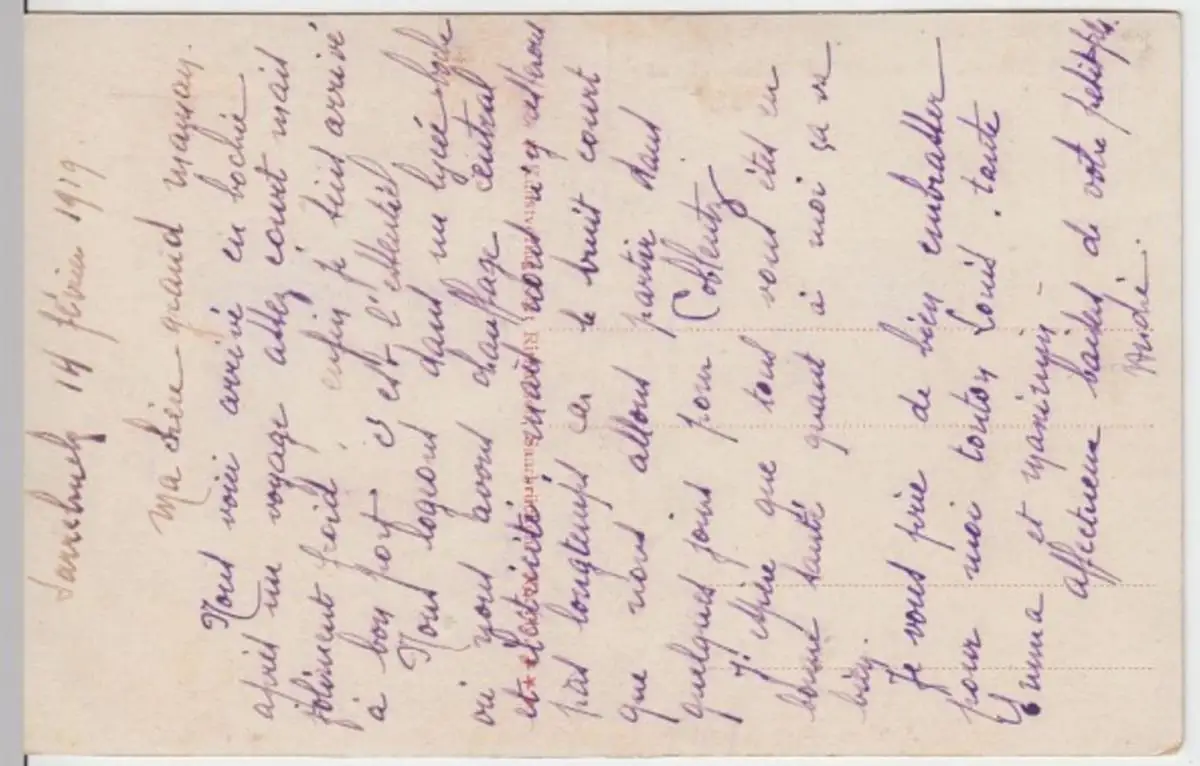 Sarrebruck 14 février 1919.
Ma chère grand maman.
Nous voici arrivé en bochie
après un voyage assez court mais
joliment froid, enfin je suis arrivé
à bon port c'est l'essentiel
Nous logeons dans un lycée
où nous avons chauffage central
et électricité mais nous n'y resterons
pas longtemps car le bruit court
que nous allons partir dans
quelques jours pour Coblentz
J'espère que tous vous êtes en
bonne santé quant à moi ça va
bien.
Je vous prie de bien embrasser
pour moi tonton Louis. tante
Emma et
affectueux baisers de votre petit fils
André.